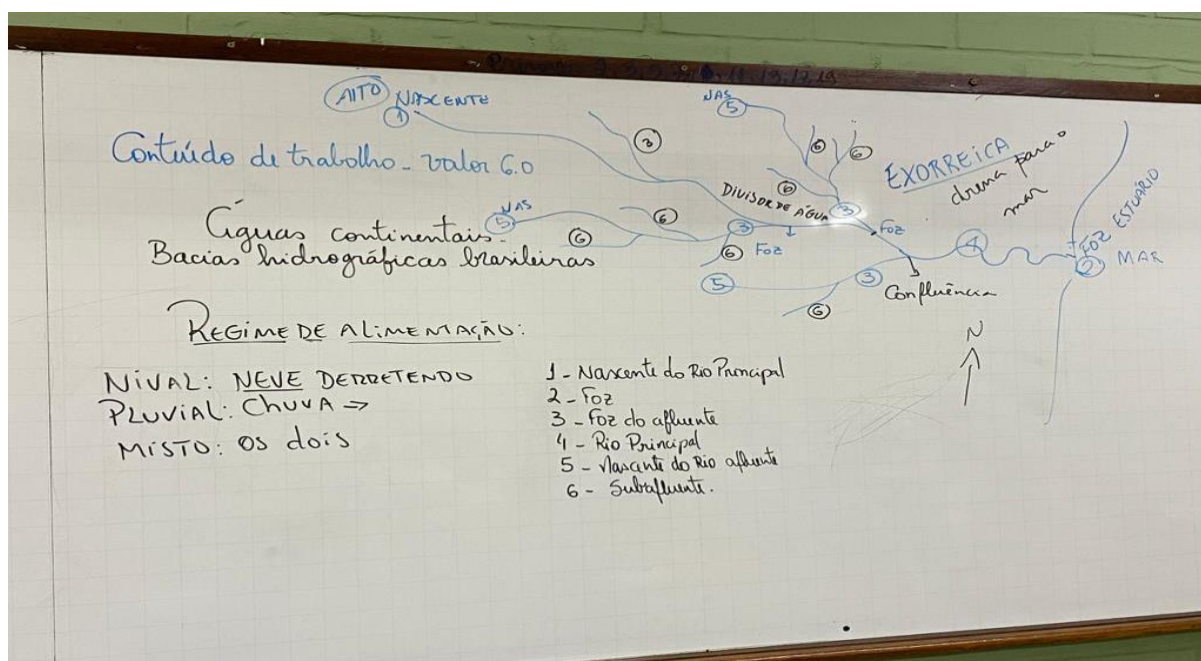 ALTO NASCENTE
1
NAS
5
Conteúdo de trabalho - valor 6.0
Águas continentais.
Bacias hidrográficas brasileiras
REGIME DE ALIMENTAÇÃO:
NIVAL: NEVE DERRETENDO
PLUVIAL: CHUVA →
MISTO: OS dois
NAS
5
3
6
6
6
6
6
DIVISOR DE ÁGUA
3
3
FOZ
6
5
FOZ
3
6
Confluência
4
EXORREICA
drena para o
mar
FOZ ESTUÁRIO
2
MAR
N
1 - Nascente do Rio Principal
2 - Foz
3 - Foz do afluente
4 - Rio Principal
5 - Nascente do Rio afluente
6 - Subafluente.